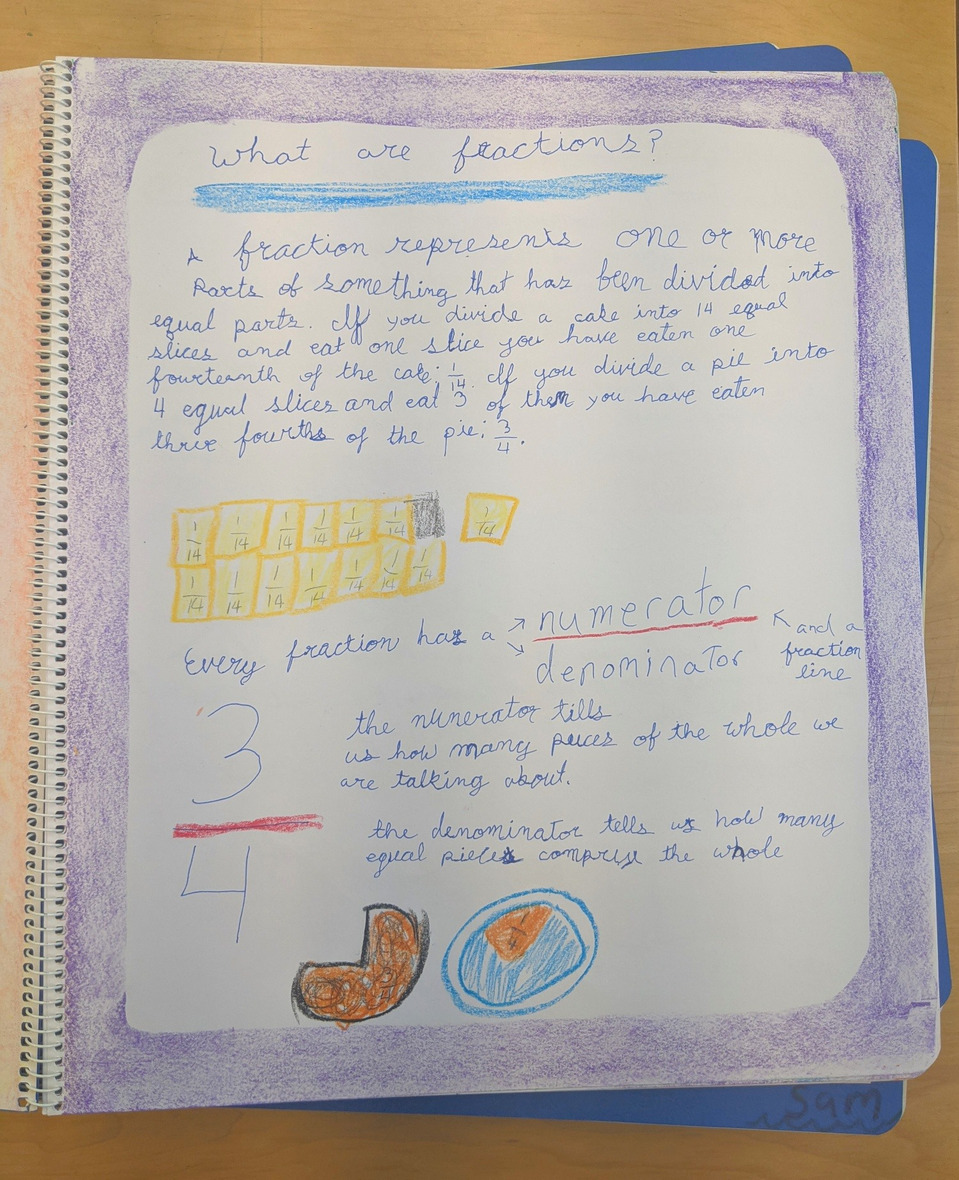 What are fractions?
A fraction represents one or more
Parts of something that has been divided into
equal parts. If you divide a cake into 14 equal
slices and eat one slice you have eaten one
fourteenth of the cake; 1/14. If you divide a pie into
4 equal slices and eat 3 of them you have eaten
three fourths of the pie; 3/4.
1/14 1/14 1/14 1/14 1/14 1/14 1/14
1/14 1/14 1/14 1/14 1/14 1/14 1/14
Every fraction has a numerator
denominator
and a
fraction
line
3
4
the nunerator tills
us how many pieces of the whole we
are talking about.
the denominator tells us how many
equal pieces comprise the whole
3/4
1/4
Sam